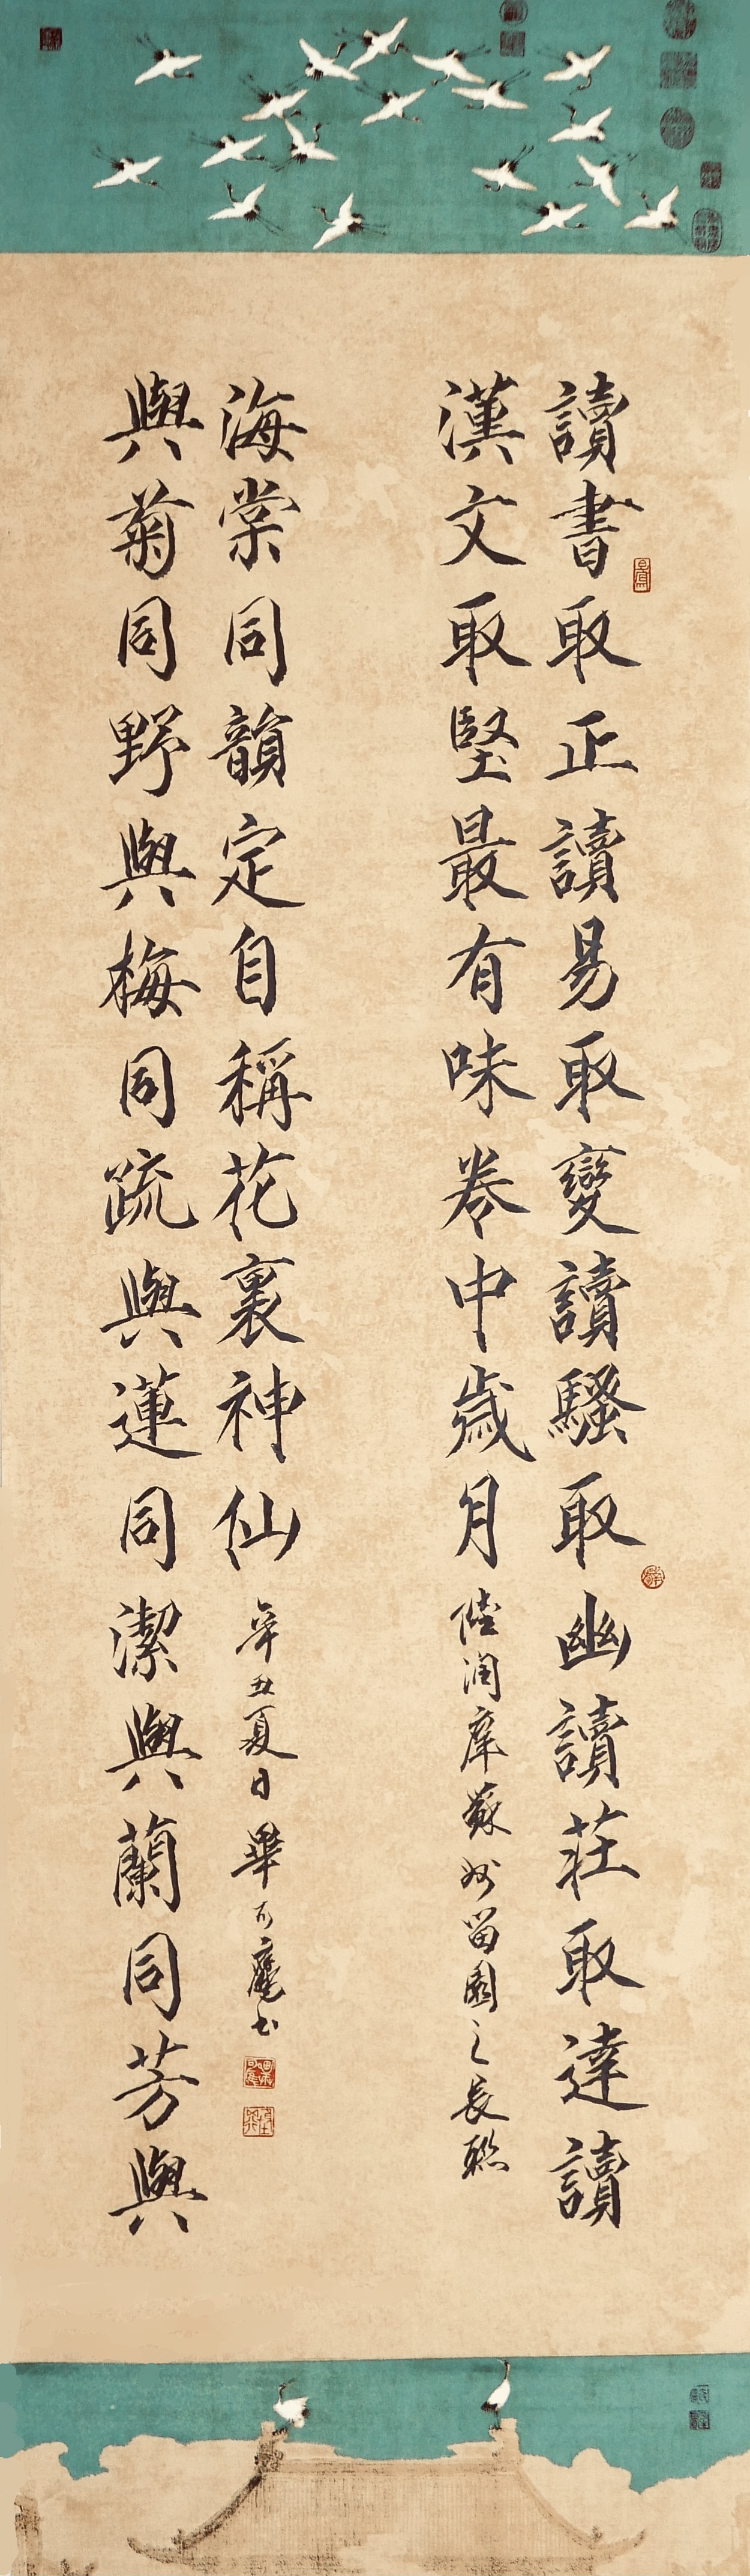 讀書取正讀易取變讀騷取幽讀莊取達讀
漢文取堅最有味卷中歲月
陸潤庠蘇州留園之長聯
與菊同野與梅同疏與蓮同潔與蘭同芳與
海棠同韻定自稱花裏神仙
辛丑夏日畢可書